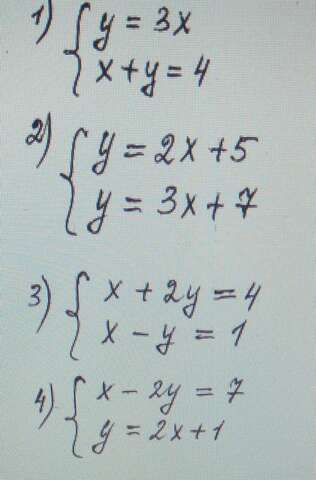 1) { y = 3x
x + y = 4
2) { y = 2x + 5
y = 3x + 7
3) { x + 2y = 4
x - y = 1
4) { x - 2y = 7
y = 2x + 1